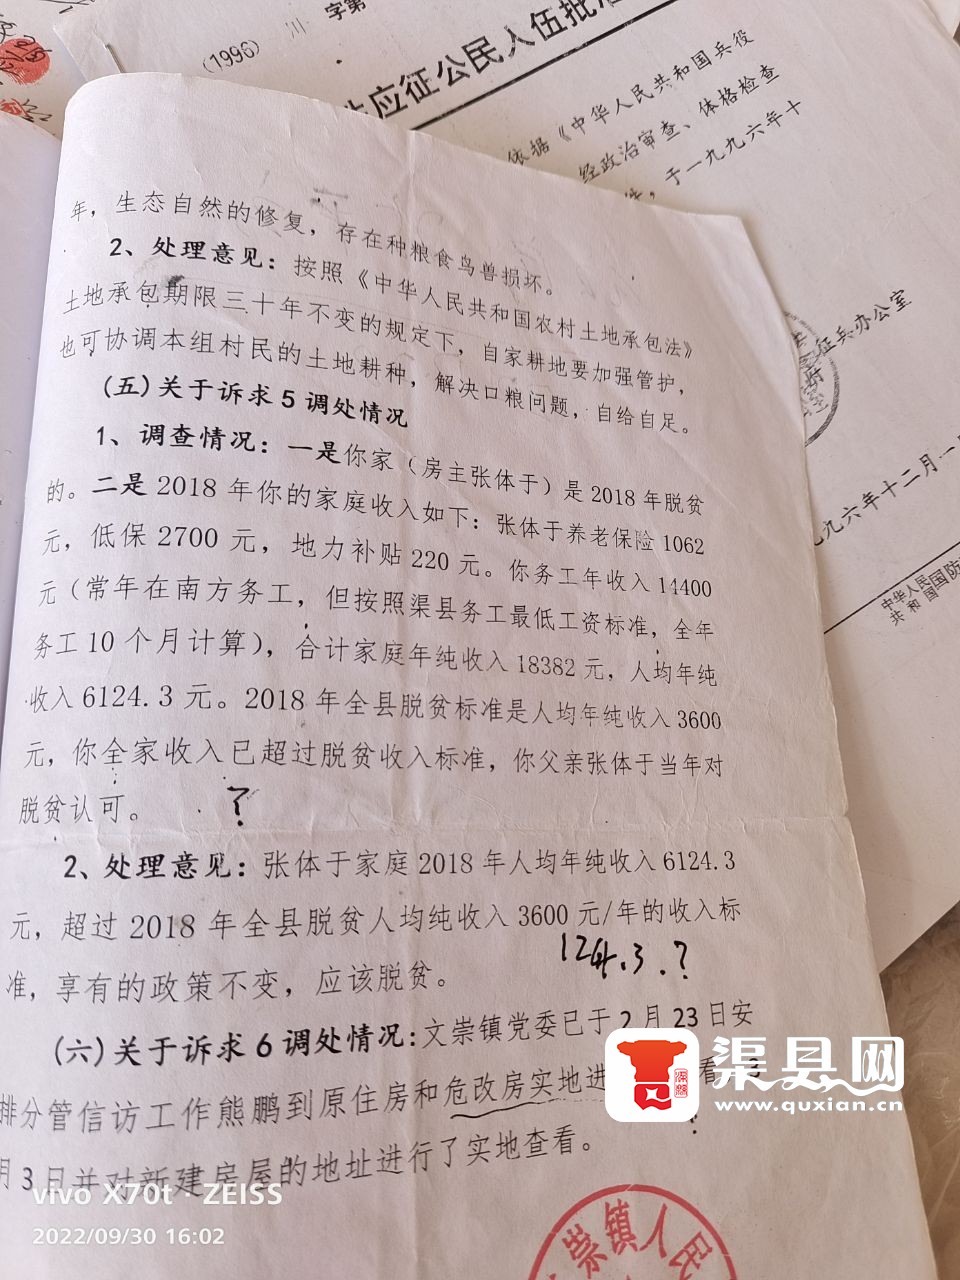 (1996) 川 字第
应征公民入伍批准
依据《中华人民共和国兵役
经政治审查、体格检查
件，于一九九六年十
征兵办公室
九六年十二月一
中华人民
共和国
国防
年，生态自然的修复，存在种粮食鸟兽损坏。
2、处理意见：按照《中华人民共和国农村土地承包法》
土地承包期限三十年不变的规定下，自家耕地要加强管护，
也可协调本组村民的土地耕种，解决口粮问题，自给自足。
(五)关于诉求5调处情况
1、调查情况：一是你家（房主张体于）是2018年脱贫
的。二是2018年你的家庭收入如下：张体于养老保险1062
元，低保2700元，地力补贴220元。你务工年收入14400
元（常年在南方务工，但按照渠县务工最低工资标准，全年
务工10个月计算），合计家庭年纯收入18382元，人均年纯
收入6124.3元。2018年全县脱贫标准是人均年纯收入3600
元，你全家收入已超过脱贫收入标准，你父亲张体于当年对
脱贫认可。 ?
2、处理意见：张体于家庭2018年人均年纯收入6124.3
元，超过2018年全县脱贫人均纯收入3600元/年的收入标
124.3.?
准，享有的政策不变，应该脱贫。
(六)关于诉求6调处情况:文崇镇党委已于2月23日安
排分管信访工作熊鹏到原住房和危改房实地进 看 3
月3日并对新建房屋的地址进行了实地查看。
崇镇人民
渠县网
www.quxian.cn
vivo X70t · ZEISS
2022/09/30 16:02